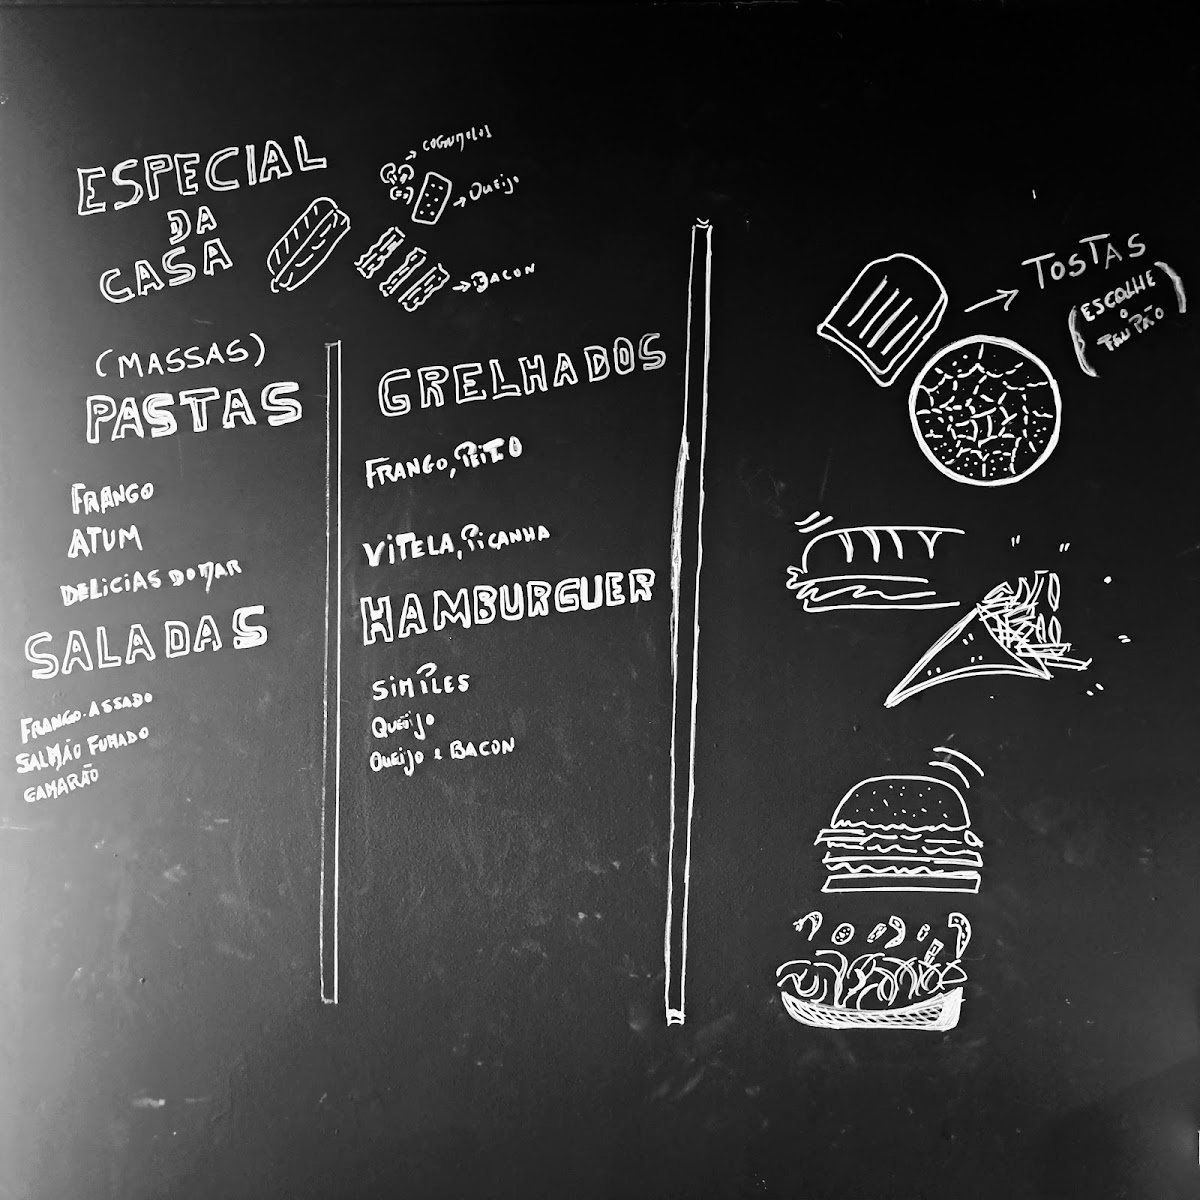 ESPECIAL
DA
CASA
COGUMELOS
QUEIJO
BACON
(MASSAS)
PASTAS
FRANGO
ATUM
DELICIAS DO MAR
SALADAS
FRANGO ASSADO
SALMÃO FUMADO
CAMARÃO
GRELHADOS
FRANGO, PEITO
VITELA, PICANHA
HAMBURGUER
SIMPLES
QUEIJO
QUEIJO E BACON
TOSTAS
(ESCOLHE
O
TEU PÃO)